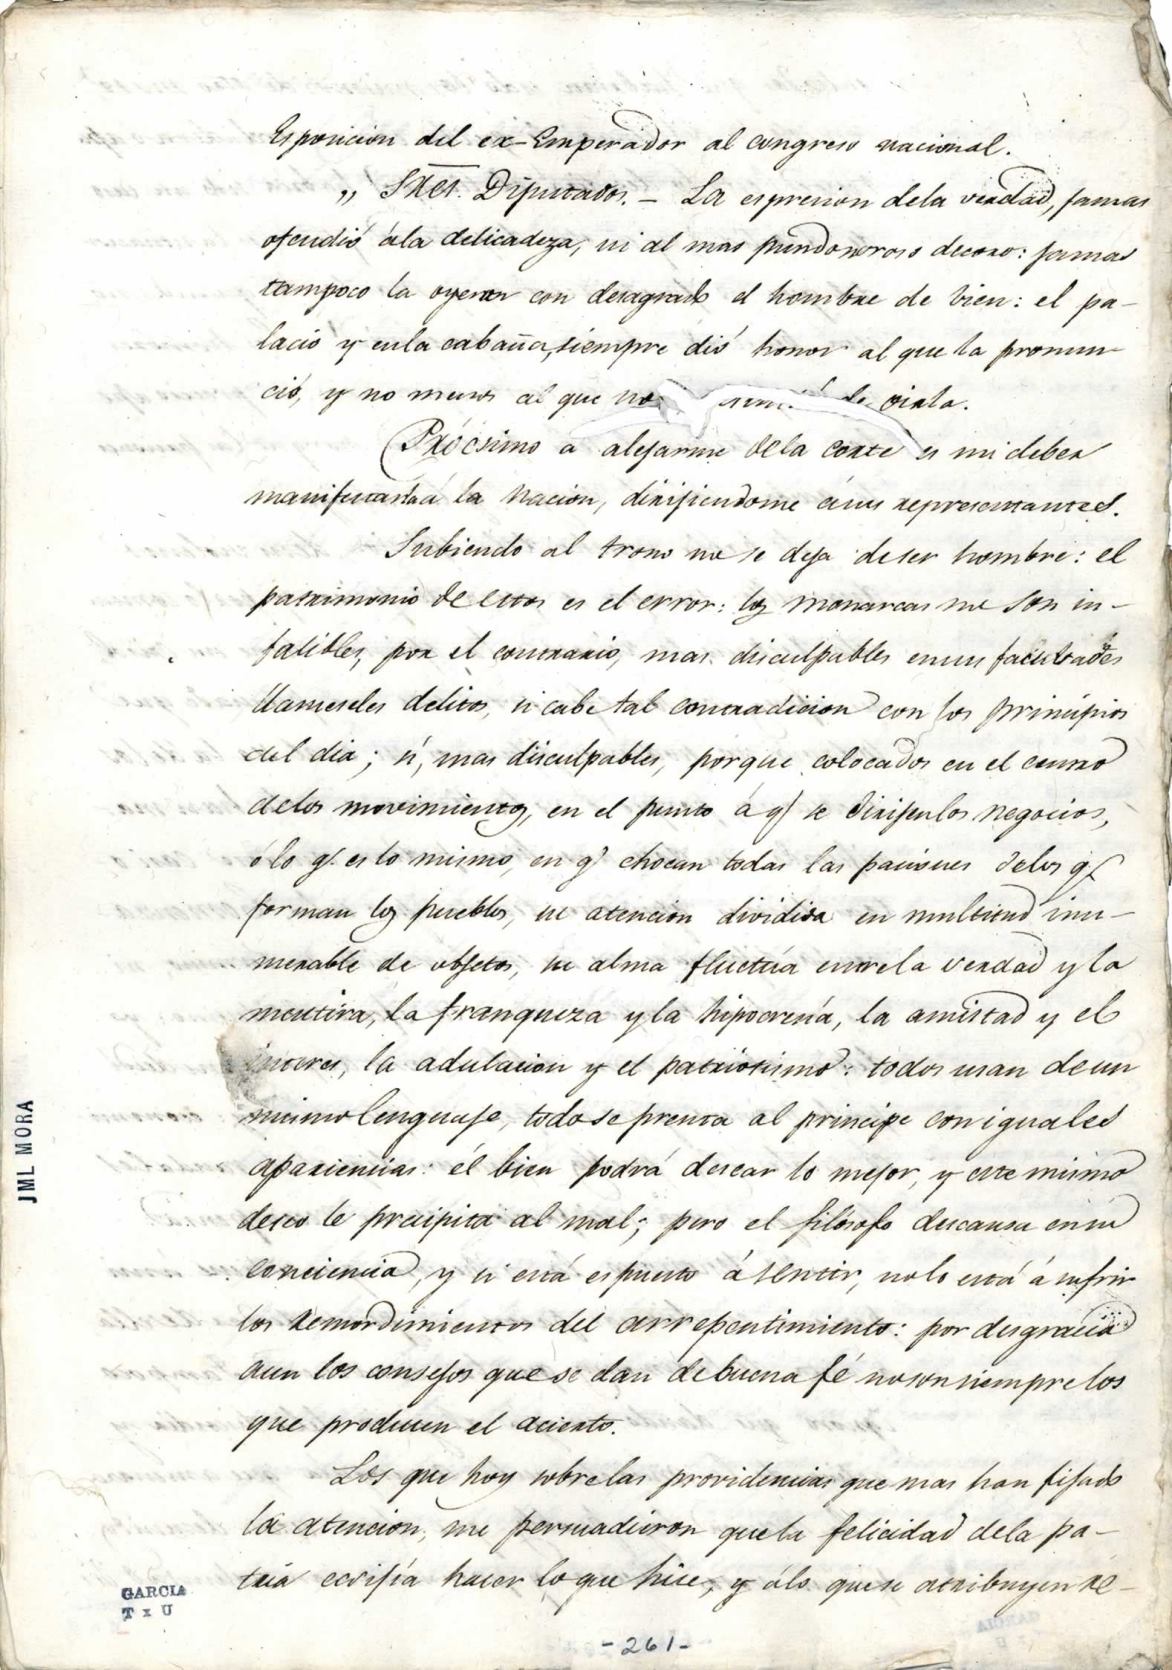 Esposicion del ex-Emperador al congreso nacional.
„ SStes. Diputados. – La espresion dela verdad, jamas
ofendió ála delicadeza, ni al mas pundonoroso decoro: jamas
tampoco la oyeron con desagrado el hombre de bien: el pa-
lacio y enla cabaña, siempre dió honor al que la pronun-
ció, y no menos al que no de oirla.
Prócsimo a alejarme dela corte es mi deber
manifestarlo á la nacion, dirijiendome ásus representantes.
Subiendo al trono no se deja deser hombre: el
patrimonio de estos es el error: los monarcas no son in-
falibles, por el contrario, mas disculpables ensus facultades
llamenseles delitos, si cabe tal contradicion con los principios
del dia; sí, mas disculpables, porque colocados en el centro
delos movimientos, en el punto á q.e se dirijen los negocios,
ólo q.e es lo mismo, en q.e chocan todas las pasiones delos q.e
forman los pueblos, su atencion dividida en multitud inu-
merable de objetos, su alma fluctúa entrela verdad y la
mentira, la franqueza y la hipocresía, la amistad y el
interes, la adulacion y el patriotismo: todos usan de un
mismo lenguaje, todo se presta al principe con iguales
apariencias: él bien podrá desear lo mejor, y este mismo
deseo le precipita al mal; pero el filósofo descansa ensu
conciencia, y si está espuesto á sentir, nolo está á sufrir
los remordimientos del arrepentimiento: por desgracia
aun los consejos que se dan de buena fé noson siempre los
que producen el acierto.
Los que hoy sobrelas providencias que mas han fijado
la atencion, me persuadieron quela felicidad dela pa-
tria ecsijía hacer lo que hice, y álo que se atribuyen re-
JML MORA
GARCIA
T x U
-261-